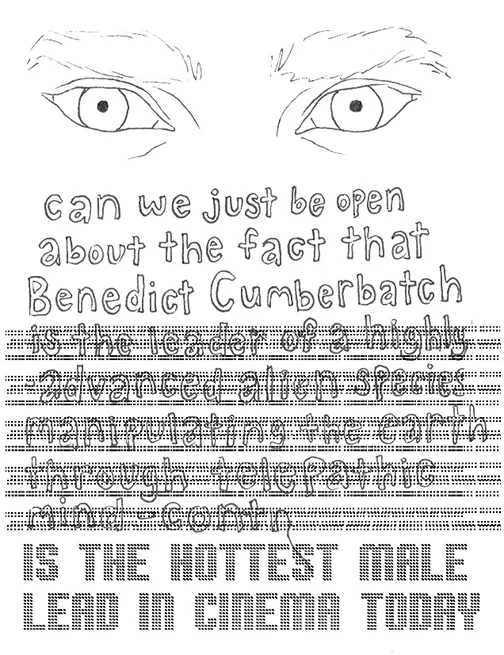 can we just be open
about the fact that
Benedict Cumberbatch
is the leader of a highly
-advanced alien species
manipulating the earth
through telepathic
mind-contr
IS THE HOTTEST MALE
LEAD IN CINEMA TODAY